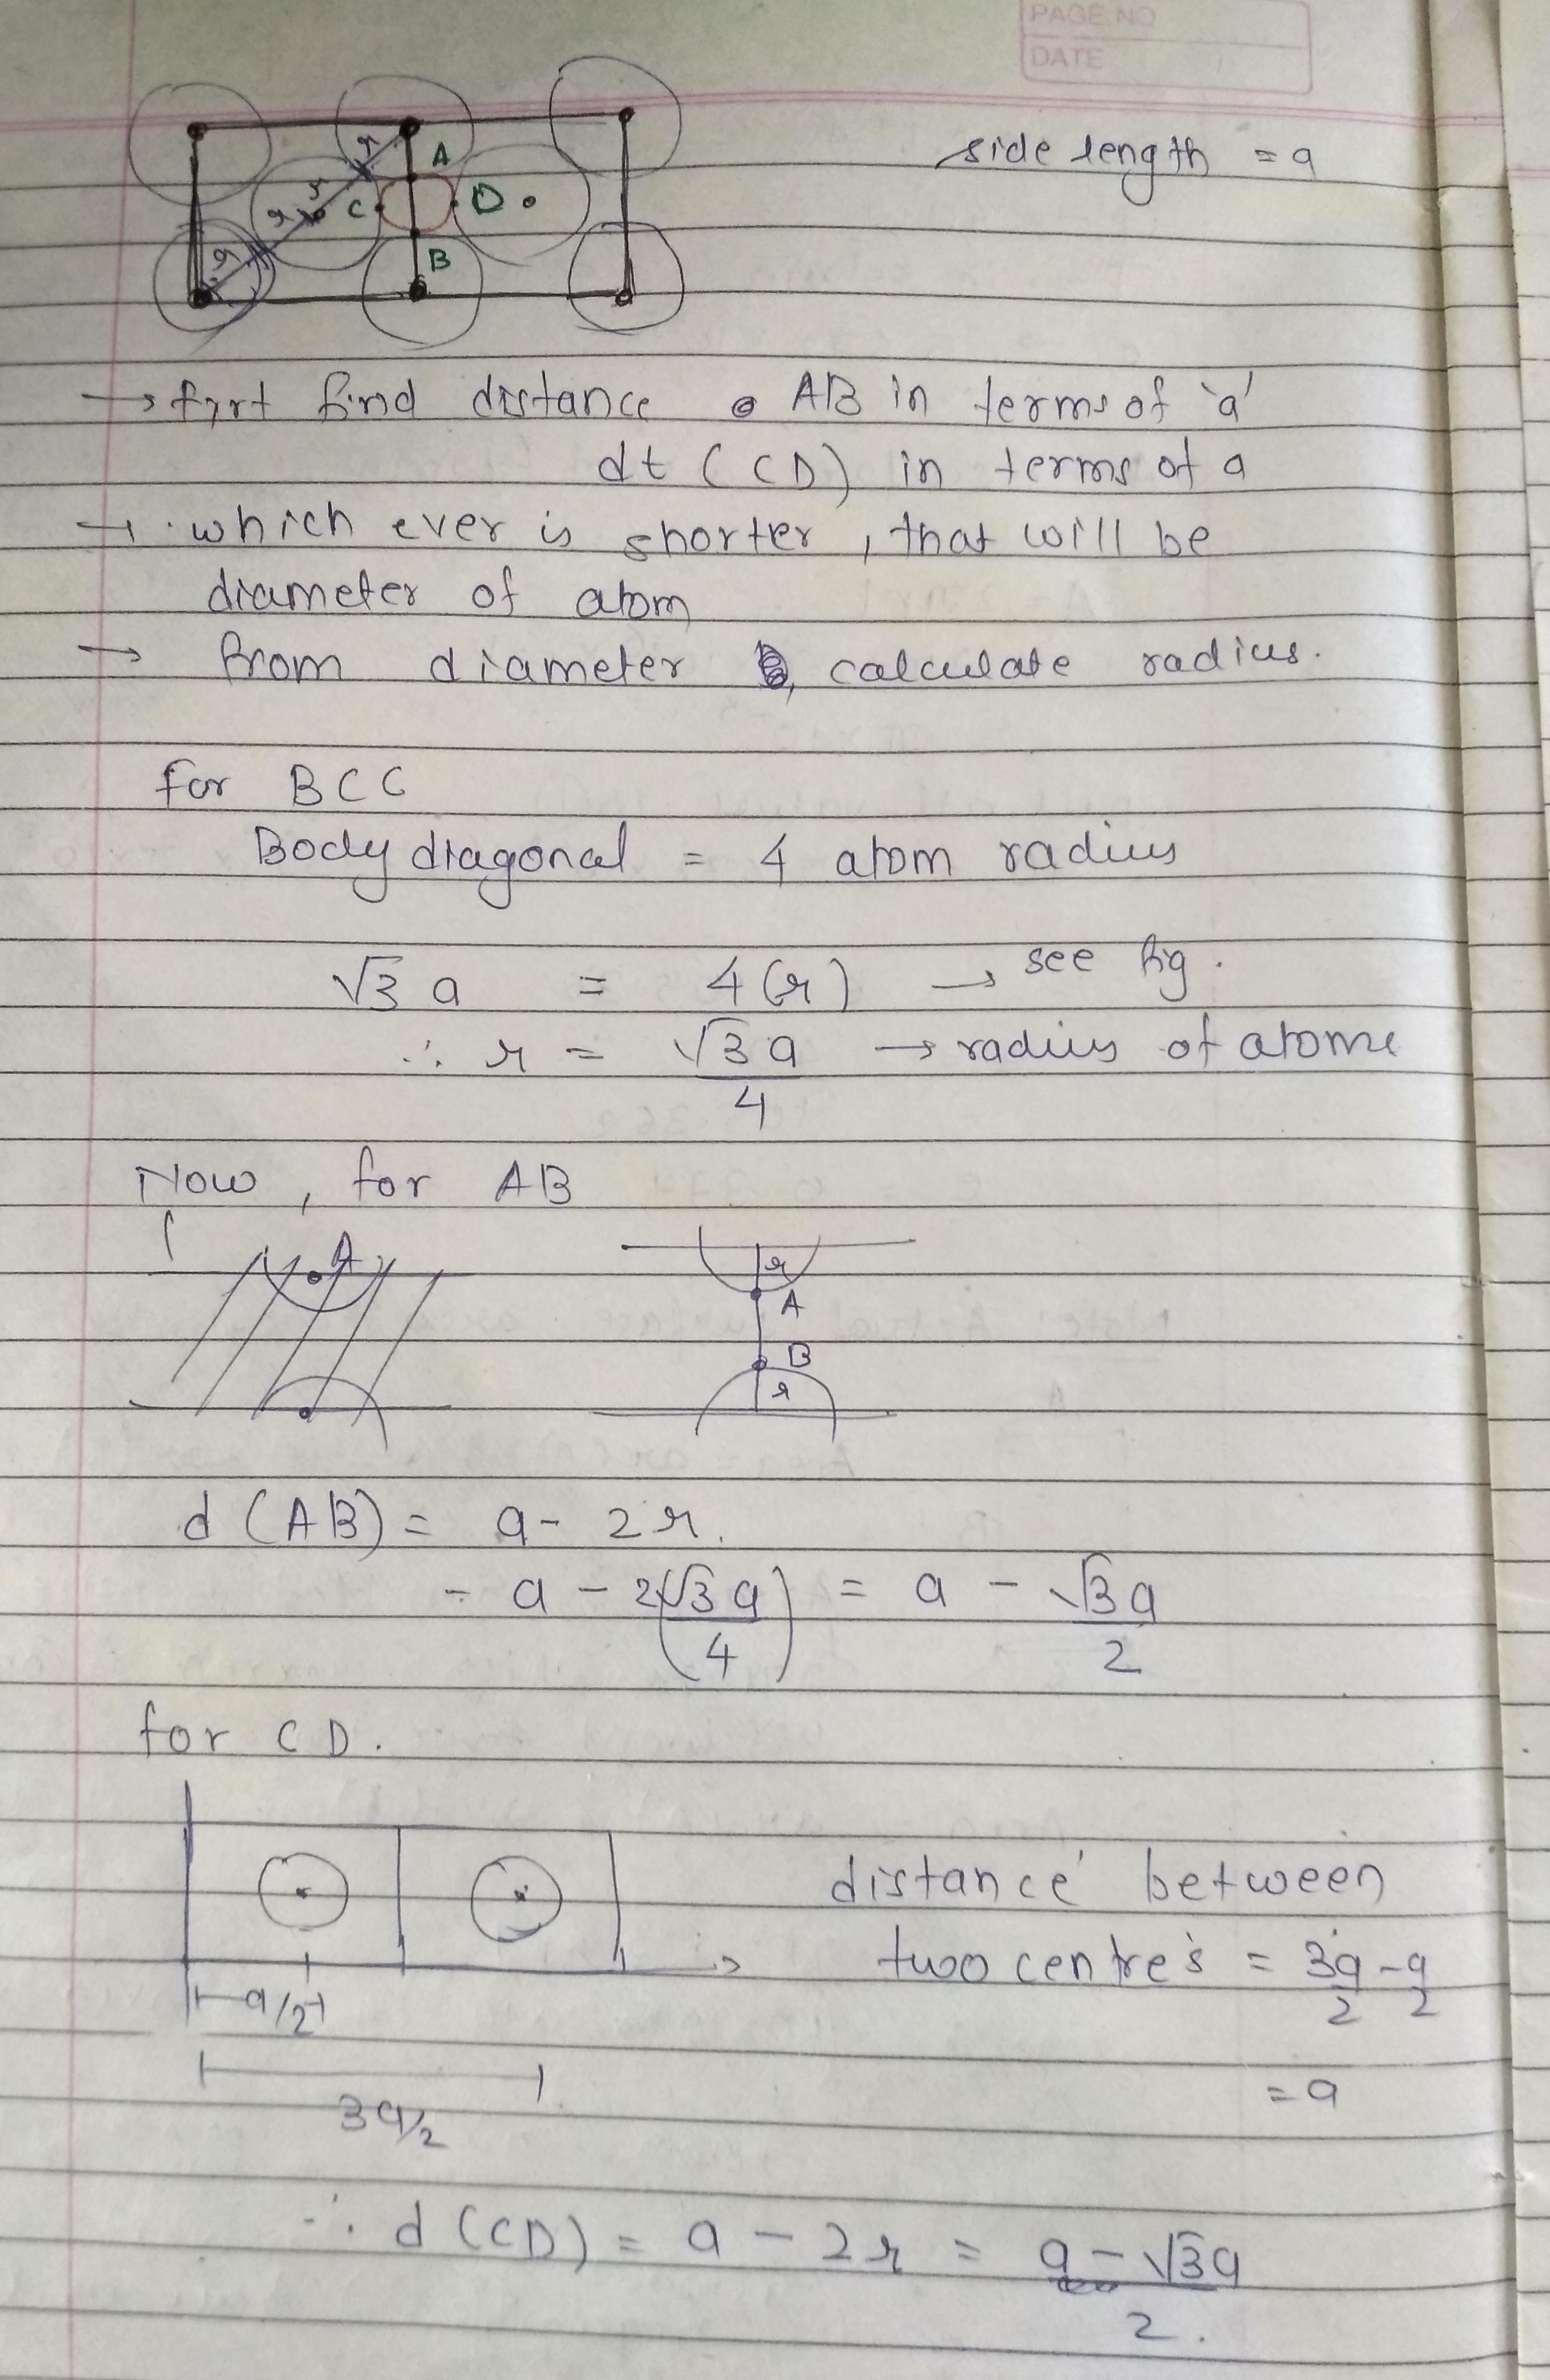 PAGE NO
DATE
side length = a
r A
r r C D
r B
→ first find distance AB in terms of 'a'
dt (CD) in terms of a
→ which ever is shorter, that will be
diameter of atom
→ from diameter, calculate radius.
for BCC
Body diagonal = 4 atom radius
√3 a = 4(r) → see fig.
∴ r = √3a/4 → radius of atome
Now, for AB
A
r
A
B
r
d(AB) = a - 2r.
= a - 2(√3a/4) = a - √3a/2
for CD.
distance between
two centre's = 3a/2 - a/2
a/2
= a
3a/2
∴ d(CD) = a - 2r = a - √3a/2.